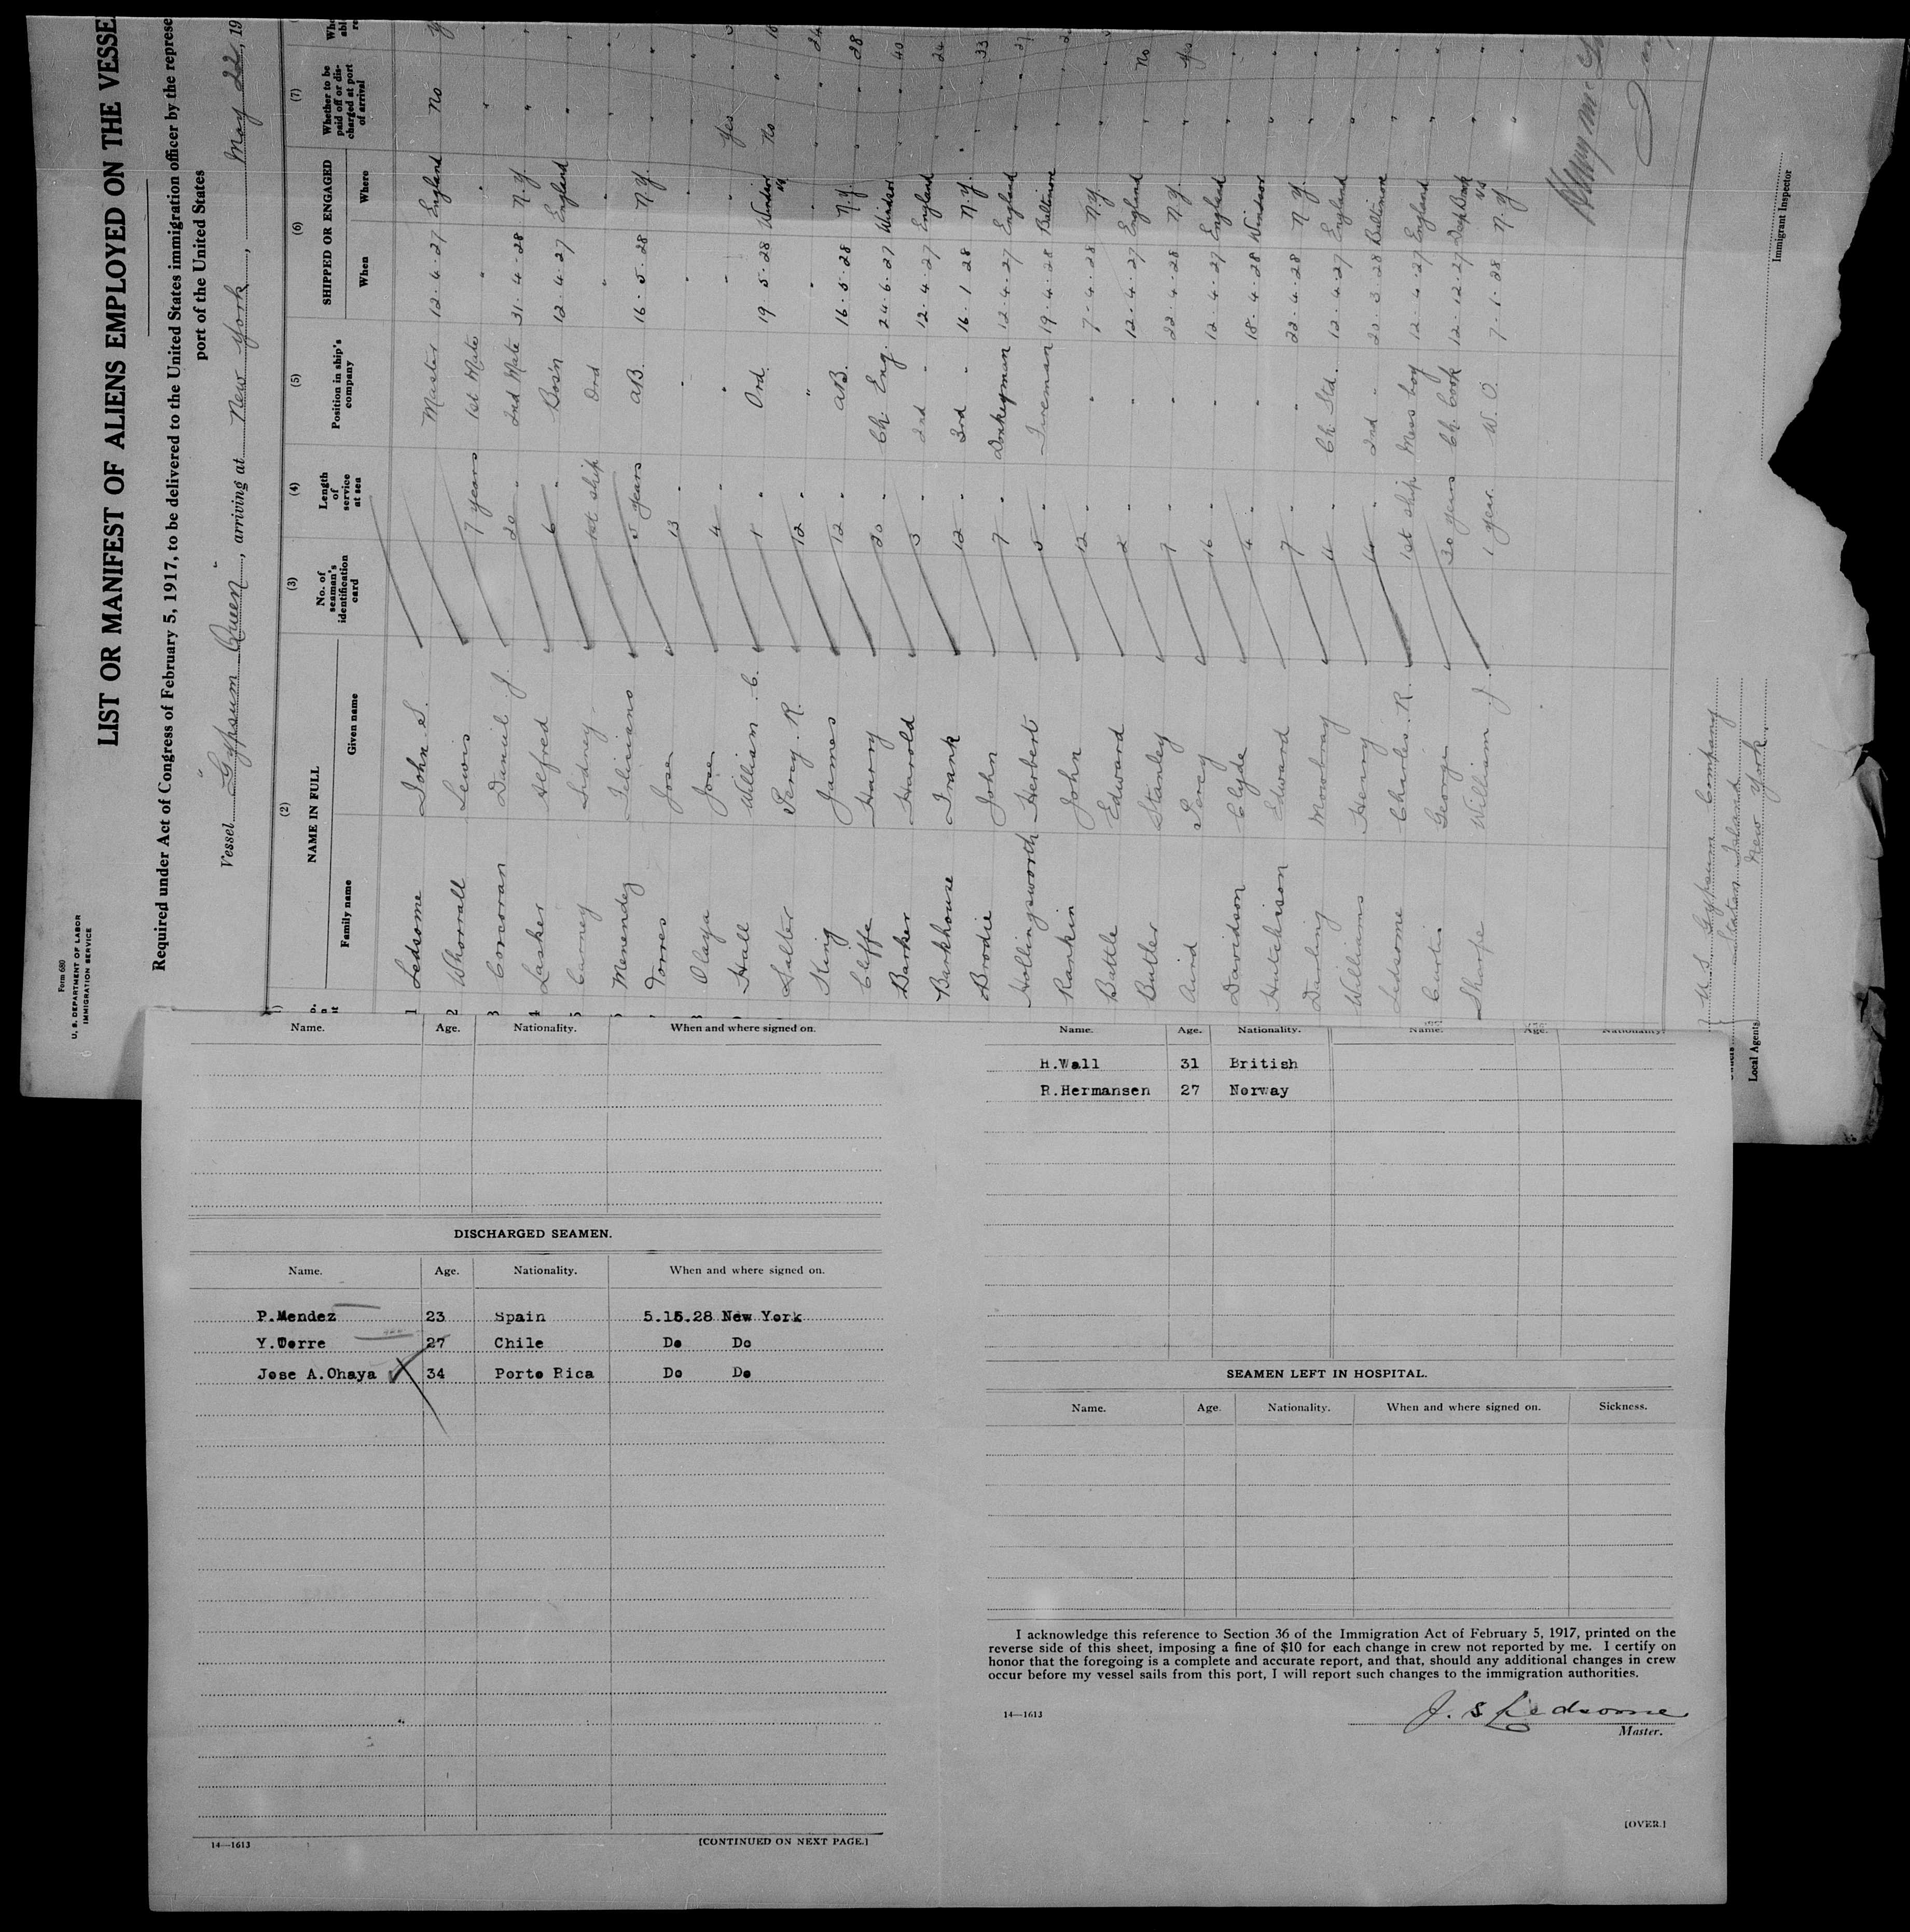 Form 680
U. S. DEPARTMENT OF LABOR
IMMIGRATION SERVICE
LIST OR MANIFEST OF ALIENS EMPLOYED ON THE VESSE
Required under Act of Congress of February 5, 1917, to be delivered to the United States immigration officer by the represe
port of the United States
Vessel "Gypsum Queen", arriving at New York, May 22, 19
(2) (3) (4) (5) (6) (7)
NAME IN FULL No. of seaman's identification card Length of service at sea Position in ship's company SHIPPED OR ENGAGED Whether to be paid off or discharged at port of arrival
Family name Given name When Where
1 Ledsome John S. Master 12.4.27 England No
2 Whorrall Lewis 7 years 1st Mate " "
3 Corcoran Daniel J. 20 " 2nd Mate 31.4.28 N.Y. "
4 Lasker Alfred 6 " Bos'n 12.4.27 England "
5 Carney Sidney 1st ship Ord " "
Menendez Feliciano 5 years AB. 16.5.28 N.Y. "
Torres Jose 13 " " " "
Olaya Jose 4 " " " " Yes
Hall William C. 1 " Ord. 19.5.28 Windsor No
Salter Percy R. 12 " " " "
King James 12 " AB. 16.5.28 N.Y. "
Cliffe Harry 20 " Ch. Eng. 24.6.27 Windsor "
Barker Harold 3 " 2nd " 12.4.27 England "
Barkhouse Frank 12 " 3rd " 16.1.28 N.Y. "
Brodie John 7 " Donkeyman 12.4.27 England "
Hollingsworth Herbert 5 " Fireman 19.4.28 Baltimore "
Rankin John 12 " " 7.4.28 N.Y. "
Battle Edward 2 " " 12.4.27 England "
Butler Stanley 7 " " 22.4.28 N.Y. "
Aird Percy 16 " " 12.4.27 England "
Davidson Clyde 4 " " 18.4.28 Windsor "
Hutchison Edward 7 " " 22.4.28 N.Y. "
Darling Mowbray 11 " Ch. Std. 12.4.27 England "
Williams Henry 14 " 2nd " 20.3.28 Baltimore "
Ledsome Charles R. 1st ship Mess boy 12.4.27 England "
Curtis George 30 years Ch. Cook 12.12.27 "
Sharpe William J. 1 year. W. O. 7.1.28 N.Y. "
U.S. Gypsum Company
Staten Island
Local Agents New York.
Immigrant Inspector
Name. Age. Nationality. When and where signed on.
DISCHARGED SEAMEN.
Name. Age. Nationality. When and where signed on.
P.Mendez 23 Spain 5.15.28 New York
Y.Torre 27 Chile Do Do
Jose A.Ohaya 34 Porto Rica Do Do
14—1613 [CONTINUED ON NEXT PAGE.]
Name. Age. Nationality. Name. Age. Nationality.
H.Wall 31 British
R.Hermansen 27 Norway
SEAMEN LEFT IN HOSPITAL.
Name. Age. Nationality. When and where signed on. Sickness.
I acknowledge this reference to Section 36 of the Immigration Act of February 5, 1917, printed on the
reverse side of this sheet, imposing a fine of $10 for each change in crew not reported by me. I certify on
honor that the foregoing is a complete and accurate report, and that, should any additional changes in crew
occur before my vessel sails from this port, I will report such changes to the immigration authorities.
J. S Ledsome
14—1613
Master.
[OVER.]